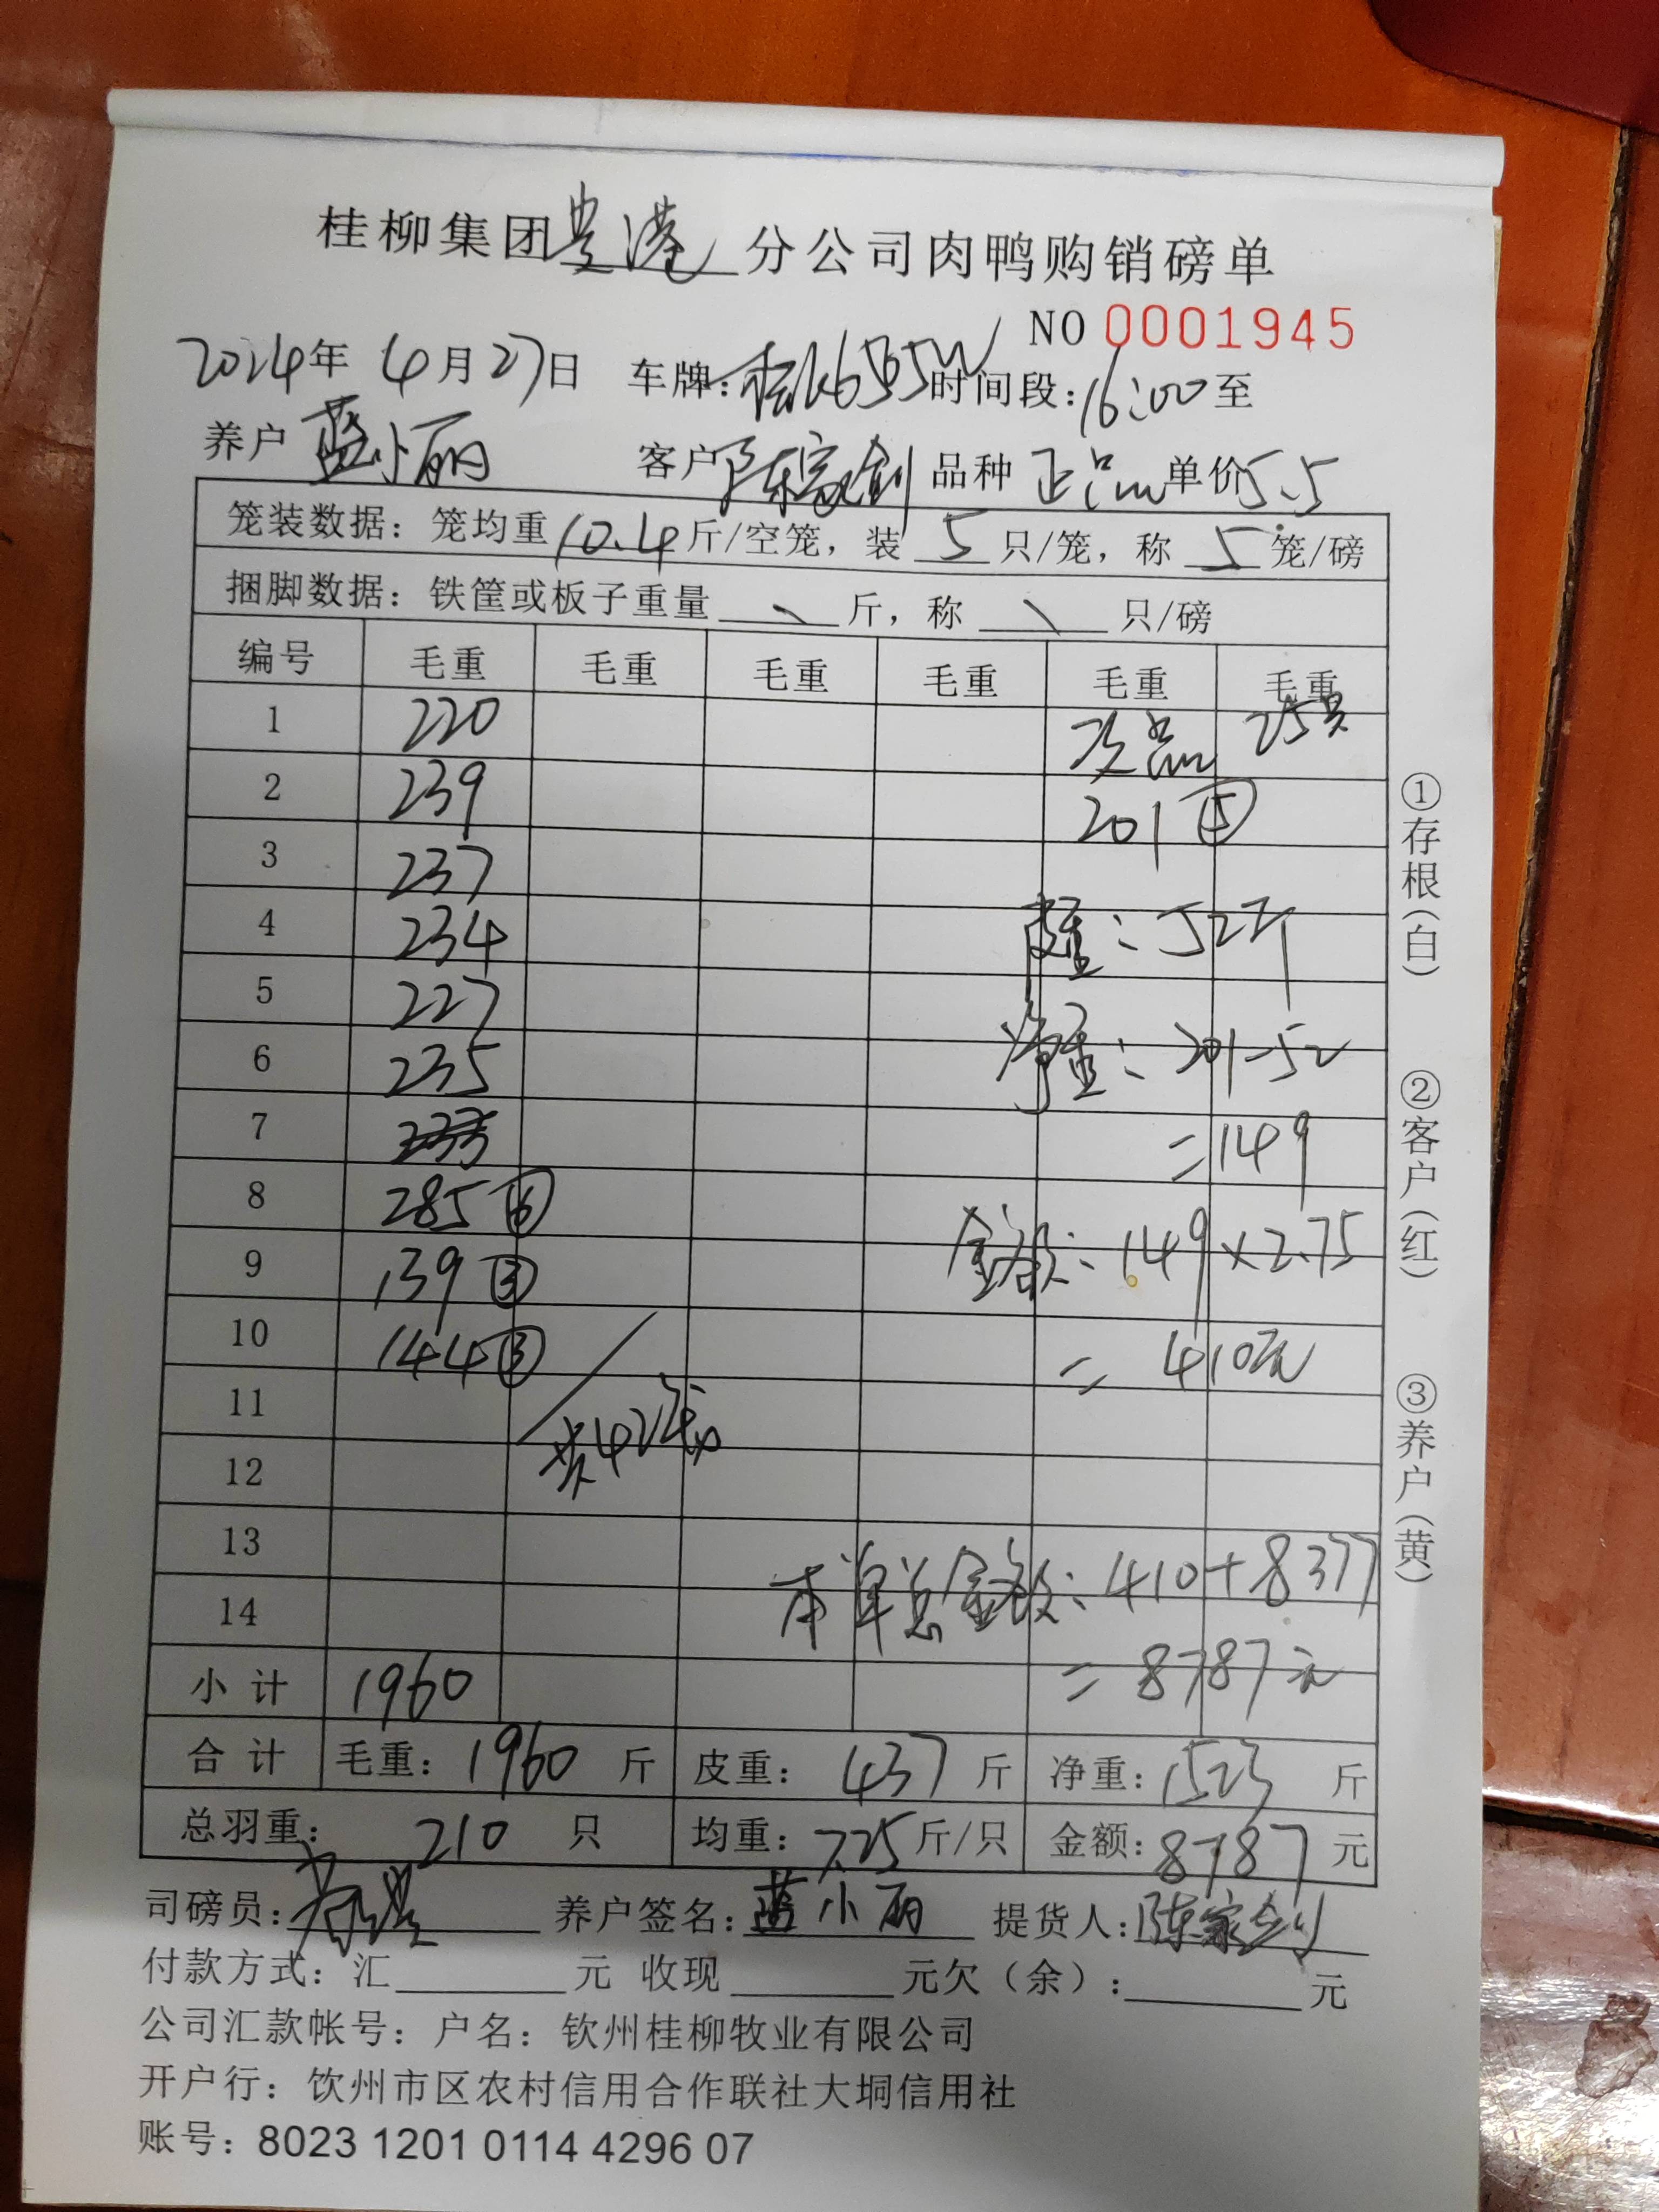 桂柳集团贵港分公司肉鸭购销磅单
NO 0001945
2024年 4月27日 车牌: 时间段:16:00至
养户 蓝小丽 客户 陈家剑 品种 正品 单价5.5
笼装数据: 笼均重10.4斤/空笼, 装 5 只/笼, 称 5 笼/磅
捆脚数据: 铁筐或板子重量 \ 斤, 称 \ 只/磅
编号 毛重 毛重 毛重 毛重 毛重 毛重
1 220 次品 25只
2 239 201 ⑤
3 237
4 234 皮重: 52斤
5 227
6 235 净重: 201-52
7 =149
8 285 ⑥
9 139 ③ 金额: 149×2.75
10 144 ③ = 410元
11
12 共42笼
13 本单总金额: 410+8377
14
小计 1960 = 8787元
合计 毛重: 1960 斤 皮重: 437 斤 净重: 1523 斤
总羽重: 210 只 均重: 7.25斤/只 金额: 8787元
司磅员: 养户签名: 蓝小丽 提货人: 陈家剑
付款方式: 汇 元 收现 元欠(余): 元
公司汇款帐号: 户名: 钦州桂柳牧业有限公司
开户行: 饮州市区农村信用合作联社大垌信用社
账号: 8023 1201 0114 4296 07
①存根(白)
②客户(红)
③养户(黄)